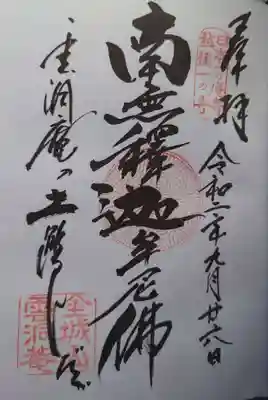 奉拝
令和二年九月廿六日
南無釋迦牟尼佛
雲洞庵の土踏んだ
金城山
雲洞菴